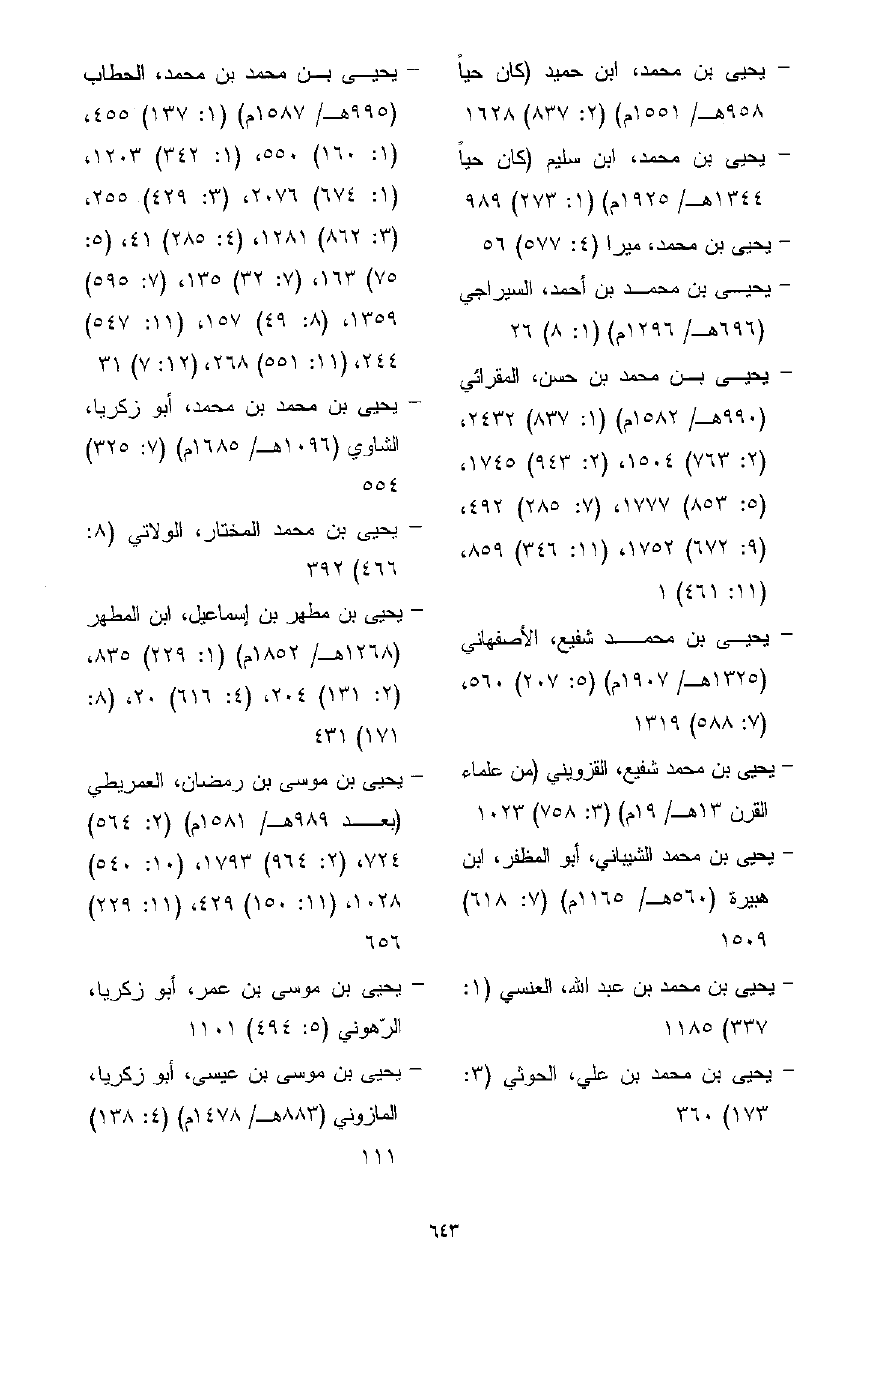 - يحيى بن محمد، ابن حميد (كان حياً
٩٥٨هـ/ ١٥٥١م) (٢: ٨٣٧) ١٦٢٨
- يحيى بن محمد، ابن سليم (كان حياً
١٣٤٤هـ/ ١٩٢٥م) (١: ٢٧٣) ٩٨٩
- يحيى بن محمد، ميرا (٤: ٥٧٧) ٥٦
- يحيى بن محمد بن أحمد، السيراجي
(٦٩٦هـ/ ١٢٩٦م) (١: ٨) ٢٦
- يحيى بن محمد بن حسن، المقرائي
(٩٩٠هـ/ ١٥٨٢م) (١: ٨٣٧) ٢٤٣٢،
(٢: ٧٦٣) ١٥٠٤، (٢: ٩٤٣) ١٧٤٥،
(٥: ٨٥٣) ١٧٧٧، (٧: ٢٨٥) ٤٩٢،
(٩: ٦٧٢) ١٧٥٢، (١١: ٣٤٦) ٨٥٩،
(١١: ٤٦١) ١
- يحيى بن محمد شفيع، الأصفهاني
(١٣٢٥هـ/ ١٩٠٧م) (٥: ٢٠٧) ٥٦٠،
(٧: ٥٨٨) ١٣١٩
- يحيى بن محمد شفيع، القزويني (من علماء
القرن ١٣هـ/ ١٩م) (٣: ٧٥٨) ١٠٢٣
- يحيى بن محمد الشيباني، أبو المظفر، ابن
هبيرة (٥٦٠هـ/ ١١٦٥م) (٧: ٦١٨)
١٥٠٩
- يحيى بن محمد بن عبد الله، العنسي (١:
٣٣٧) ١١٨٥
- يحيى بن محمد بن علي، الحوثي (٣:
١٧٣) ٣٦٠
- يحيى بن محمد بن محمد، الحطاب
(٩٩٥هـ/ ١٥٨٧م) (١: ١٣٧) ٤٥٥،
(١: ١٦٠) ٥٥٠، (١: ٣٤٢) ١٢٠٣،
(١: ٦٧٤) ٢٠٧٦، (٣: ٤٢٩) ٢٥٥،
(٣: ٨٦٢) ١٢٨١، (٤: ٢٨٥) ٤١، (٥:
٧٥) ١٦٣، (٧: ٣٢) ١٣٥، (٧: ٥٩٥)
١٣٥٩، (٨: ٤٩) ١٥٧، (١١: ٥٤٧)
٢٤٤، (١١: ٥٥١) ٢٦٨، (١٢: ٧) ٣١
- يحيى بن محمد بن محمد، أبو زكرياء،
الشاوي (١٠٩٦هـ/ ١٦٨٥م) (٧: ٣٢٥)
٥٥٤
- يحيى بن محمد المختار، الولاتي (٨:
٤٦٦) ٣٩٢
- يحيى بن مطهر بن إسماعيل، ابن المطهر
(١٢٦٨هـ/ ١٨٥٢م) (١: ٢٢٩) ٨٣٥،
(٢: ١٣١) ٢٠٤، (٤: ٦١٦) ٢٠، (٨:
١٧١) ٤٣١
- يحيى بن موسى بن رمضان، العمريطي
(بعد ٩٨٩هـ/ ١٥٨١م) (٢: ٥٦٤)
٧٢٤، (٢: ٩٦٤) ١٧٩٣، (١٠: ٥٤٠)
١٠٢٨، (١١: ١٥٠) ٤٢٩، (١١: ٢٢٩)
٦٥٦
- يحيى بن موسى بن عمر، أبو زكرياء،
الرّهوني (٥: ٤٩٤) ١١٠١
- يحيى بن موسى بن عيسى، أبو زكرياء،
المازوني (٨٨٣هـ/ ١٤٧٨م) (٤: ١٣٨)
١١١
٦٤٣